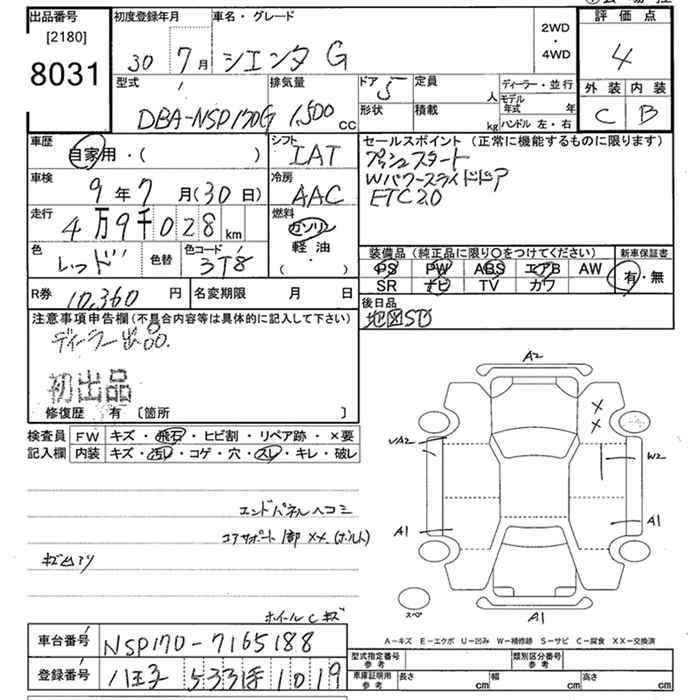 出品番号 初度登録年月 車名・グレード 評価点
[2180]
8031
30 7月 シエンタ G
2WD
・
4WD
4
型式 排気量 ドア 定員 ディーラー・並行 外装 内装
DBA-NSP170G 1,500cc 5 人 モデル年式 年 C B
形状 積載 kg ハンドル 左・右
車歴 シフト セールスポイント (正常に機能するものに限ります)
自家用・( ) IAT プッシュスタート
車検 冷房 Wパワースライドドア
9年7月(30日) AAC ETC2.0
走行 燃料
4万9千028km ガソリン
軽油
・
( )
色 色替 色コード 装備品(純正品に限り○をつけてください) 新車保証書
レッド 3T8 PS PW ABS エアB AW 有・無
SR ナビ TV カワ
R券 10,360円 名変期限 月 日 後日品
地図SD
注意事項申告欄(不具合内容等は具体的に記入して下さい)
ディーラー出品.
初出品
修復歴 有 〔箇所 〕
検査員 FW キズ・飛石・ヒビ割・リペア跡・×要
記入欄 内装 キズ・汚レ・コゲ・穴・スレ・キレ・破レ
A2
A2
W2
A1
A1
A1
スペ
エンドパネルヘコミ
コアサポート1部××.(ボルト)
ホイールCキズ
A-キズ E-エクボ U-凹み W-補修跡 S-サビ C-腐食 XX-交換済
車台番号 NSP170-7165188
登録番号 八王子 533 1019
型式指定番号 参考 類別区分番号 参考
車庫証明用 参考 長さ cm 幅 cm 高さ cm